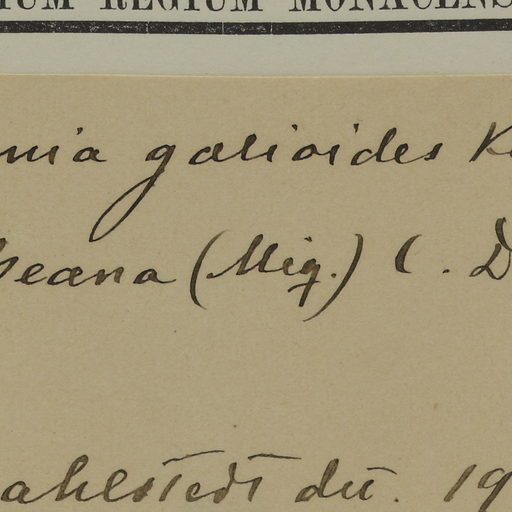 IUM REGIUM MONACENS
nia galioides K
beana (Miq.) C. D
ahlstedt det. 19